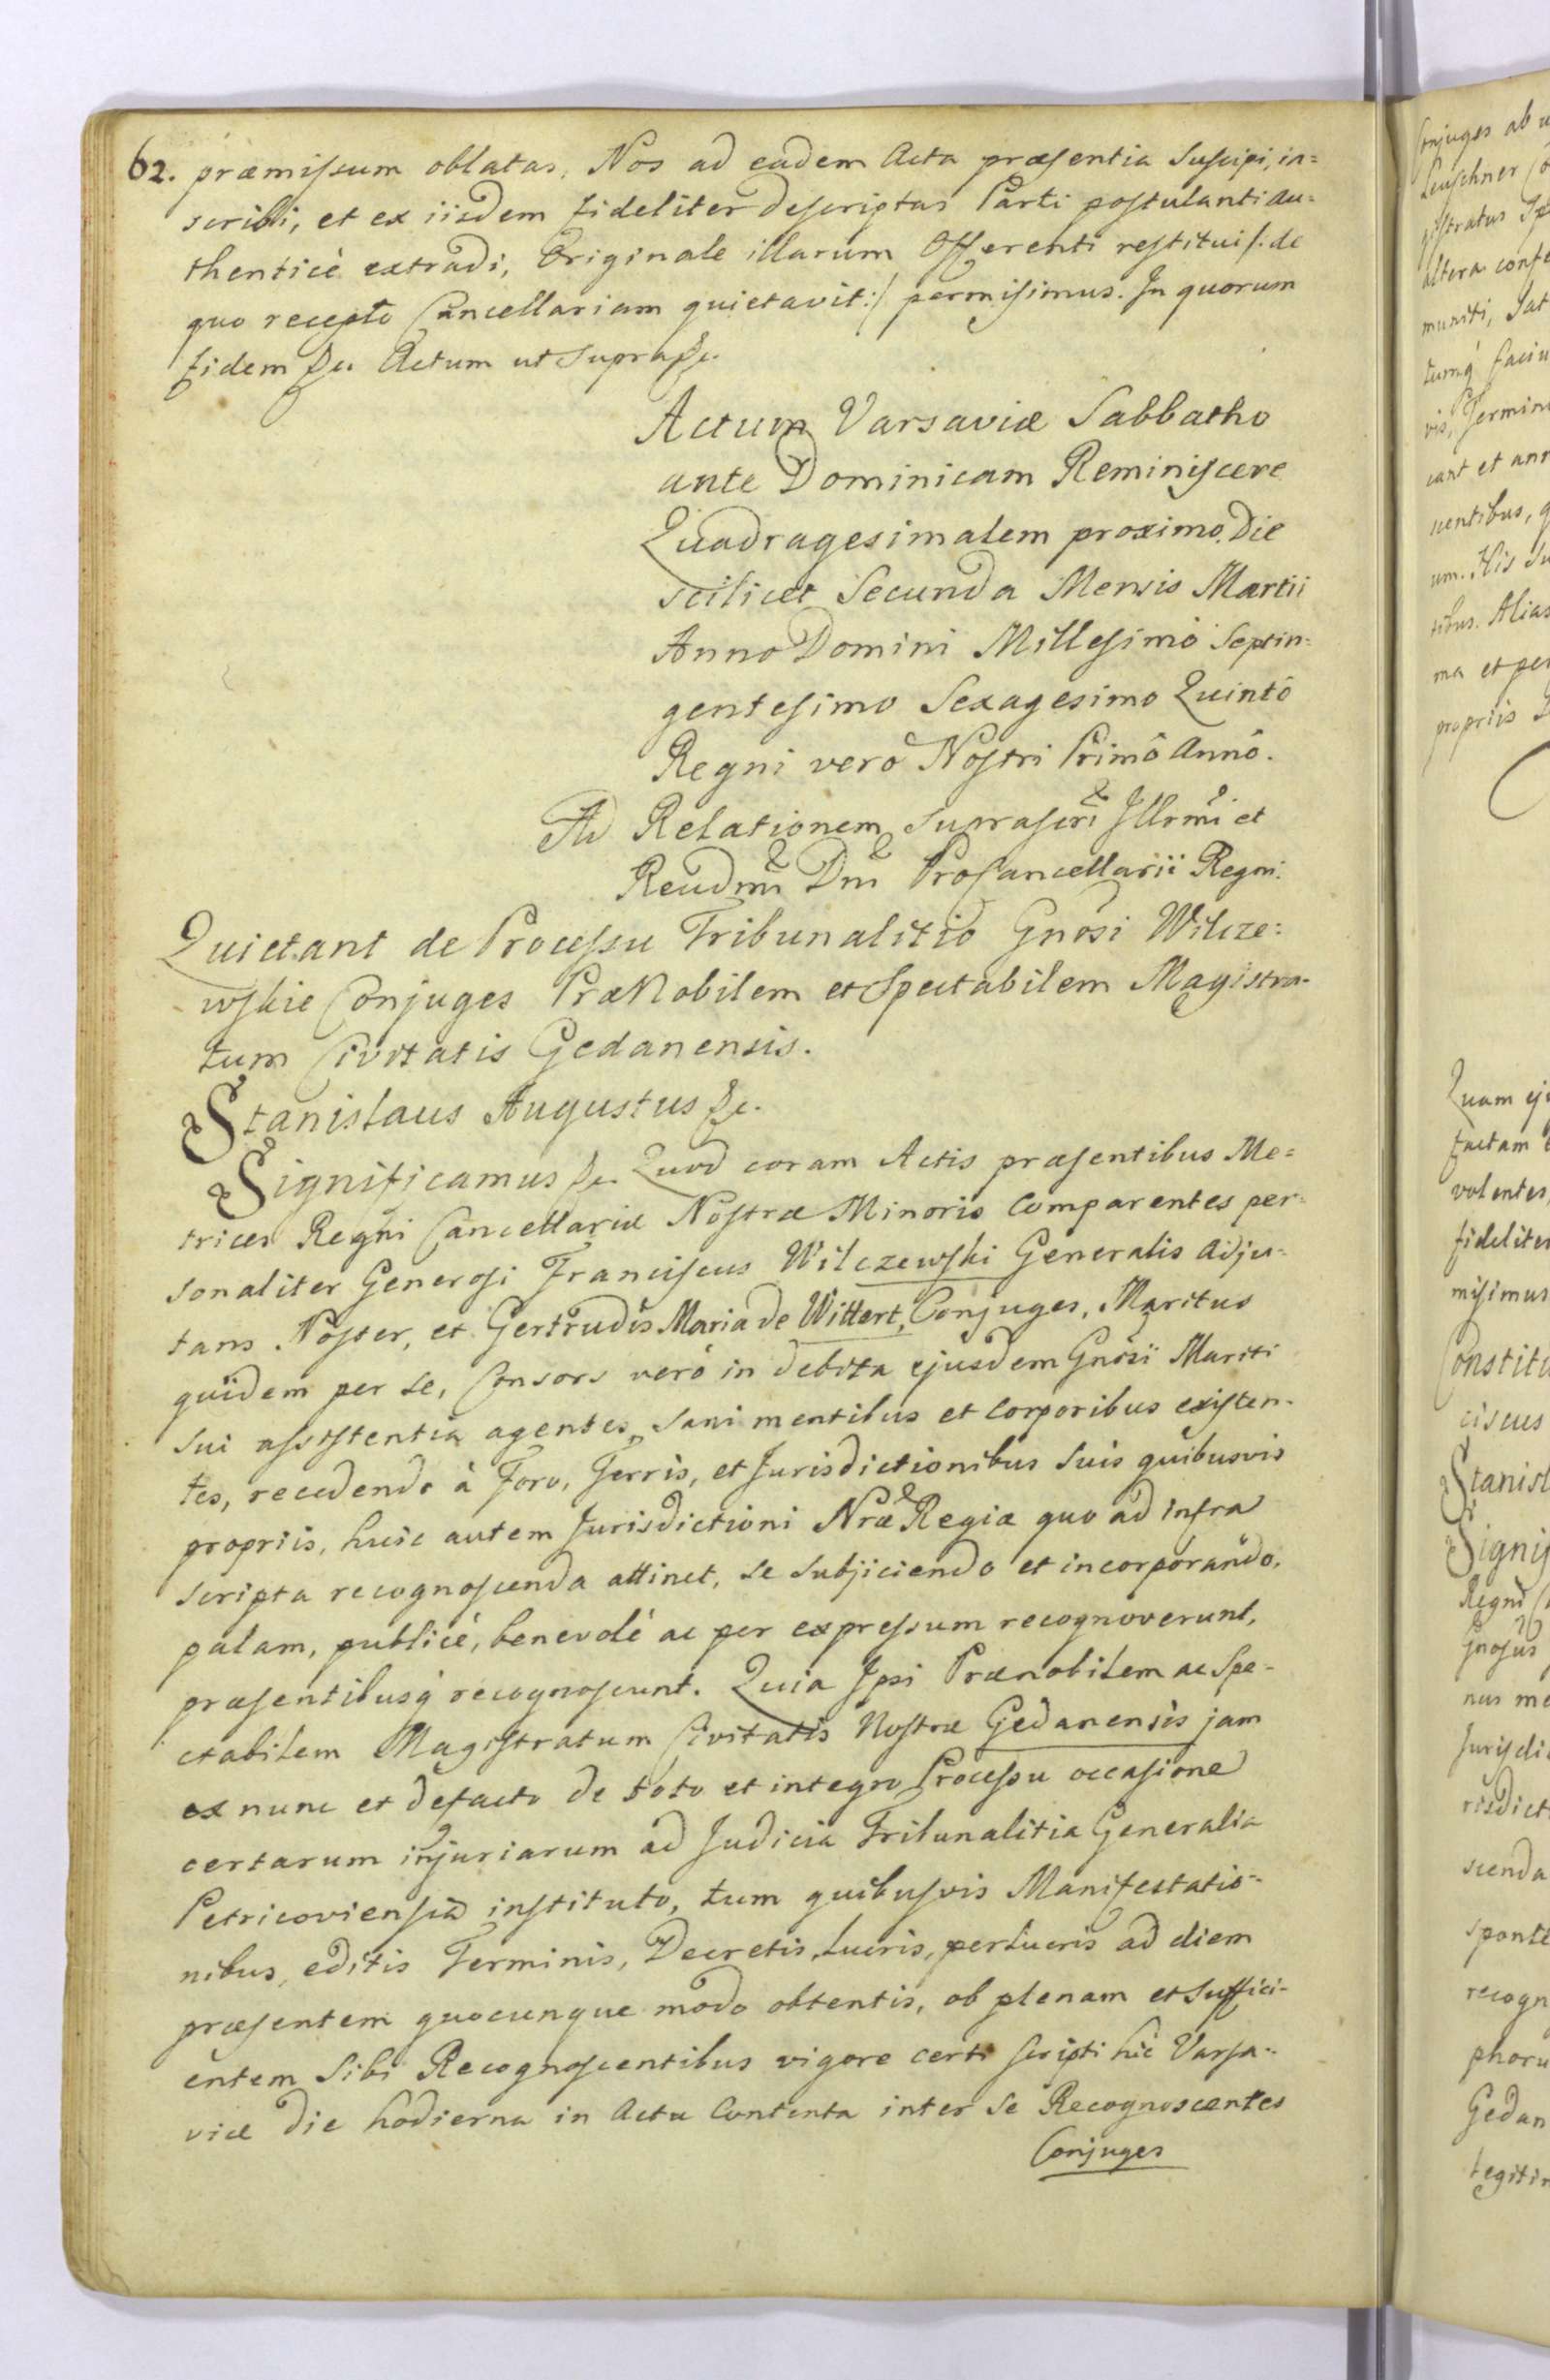 62. præmissum oblatas, Nos ad eadem Acta præsentia Suscipi, in=
scribi, et ex iisdem fideliter descriptas Parti postulanti Au=
thenticè extradi, Originale illarum Offerenti restitui /: de
quo recepto Cancellariam quietavit :/ permisimus. In quorum
fidem &c. Actum ut Supra &c.
Actum Varsaviæ Sabbatho
ante Dominicam Reminiscere
Quadragesimalem proximo, Die
scilicet Secunda Mensis Martii
Anno Domini Millesimo Septin=
gentesimo Sexagesimo Quintô
Regni vero Nostri Primô Annô.
Ad Relationem suprascri Illrmi et
Reudmi Dni ProCancellarii Regni.
Quietant de Processu Tribunalitio Gnosi Wilcze=
wskie Conjuges PræNobilem et Spectabilem Magistra-
tum Civitatis Gedanensis.
Stanislaus Augustus &c.
Significamus &c. Quod coram Actis præsentibus Me=
trices Regni Cancellariæ Nostræ Minoris Comparentes per=
sonaliter Generosi Franciscus Wilczewski Generalis Adju=
tans Noster, et Gertrudis Maria de Wittert, Conjuges, Maritus
quidem per se, Consors verò in debita ejusdem Gnosi Mariti
sui assistentia agentes, sani mentibus et Corporibus existen-
tes, recedendo à Foro, Terris, et Jurisdictionibus Suis quibusvis
propriis, huic autem Jurisdictioni Nræ Regiæ quo ad infra
scripta recognoscenda attinet, se subjiciendo et incorporando,
palam, publicè, benevolè ac per expressum recognoverunt,
præsentibusq́ recognoscunt. Quia Ipsi Prænobilem ac Spe-
ctabilem Magistratum Civitatis Nostræ Gedanensis jam
ex nunc et defacto de toto et integro Processu occasione
certarum injuriarum ad Judicia Tribunalitia Generalia
Petricoviensia instituto, tum quibusvis Manifestatio-
nibus, editis Terminis, Decretis, lucris, perlucris ad diem
præsentem quocunque modo obtentis, ob plenam et Suffici-
entem Sibi Recognoscentibus vigore certi scripti hic Varsa-
viæ die hodierna in Actu Contenta inter se Recognoscentes
Conjuges
Conjuges ab
Leuschner
gistratus
altera
muniti, Sat
tumq́ faciu
vis, Termin
cant et ann
um. His
tibus. Alias
ma et per
propriis
Quam
factam
volentes,
fideliter
misimus
Constitu
ciscus
Stanisl
Signif
Regni
Gnosus
nus me
Jurisdi
risdict
scenda
sponte
recogn
phoru
Gedan
legitim